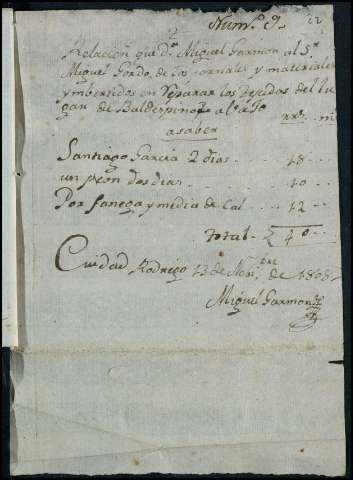 Num.º 9. 22
2
Relacion que dⁿ Miguel Garmon al Sr
Miguel Gordo, de los Jornales y materiales
ymbertidos en Reparar los tejados del lu
gar de Baldespino
asaber
Santiago Garcia 2 dias . . . 18 . . .
un peon dos dias . . . . . 10 . . .
Por fanega y media de Cal . . . 12 . . .
total . . . 40 . .
Ciudad Rodrigo 13 de de 1808
Miguel Garmon